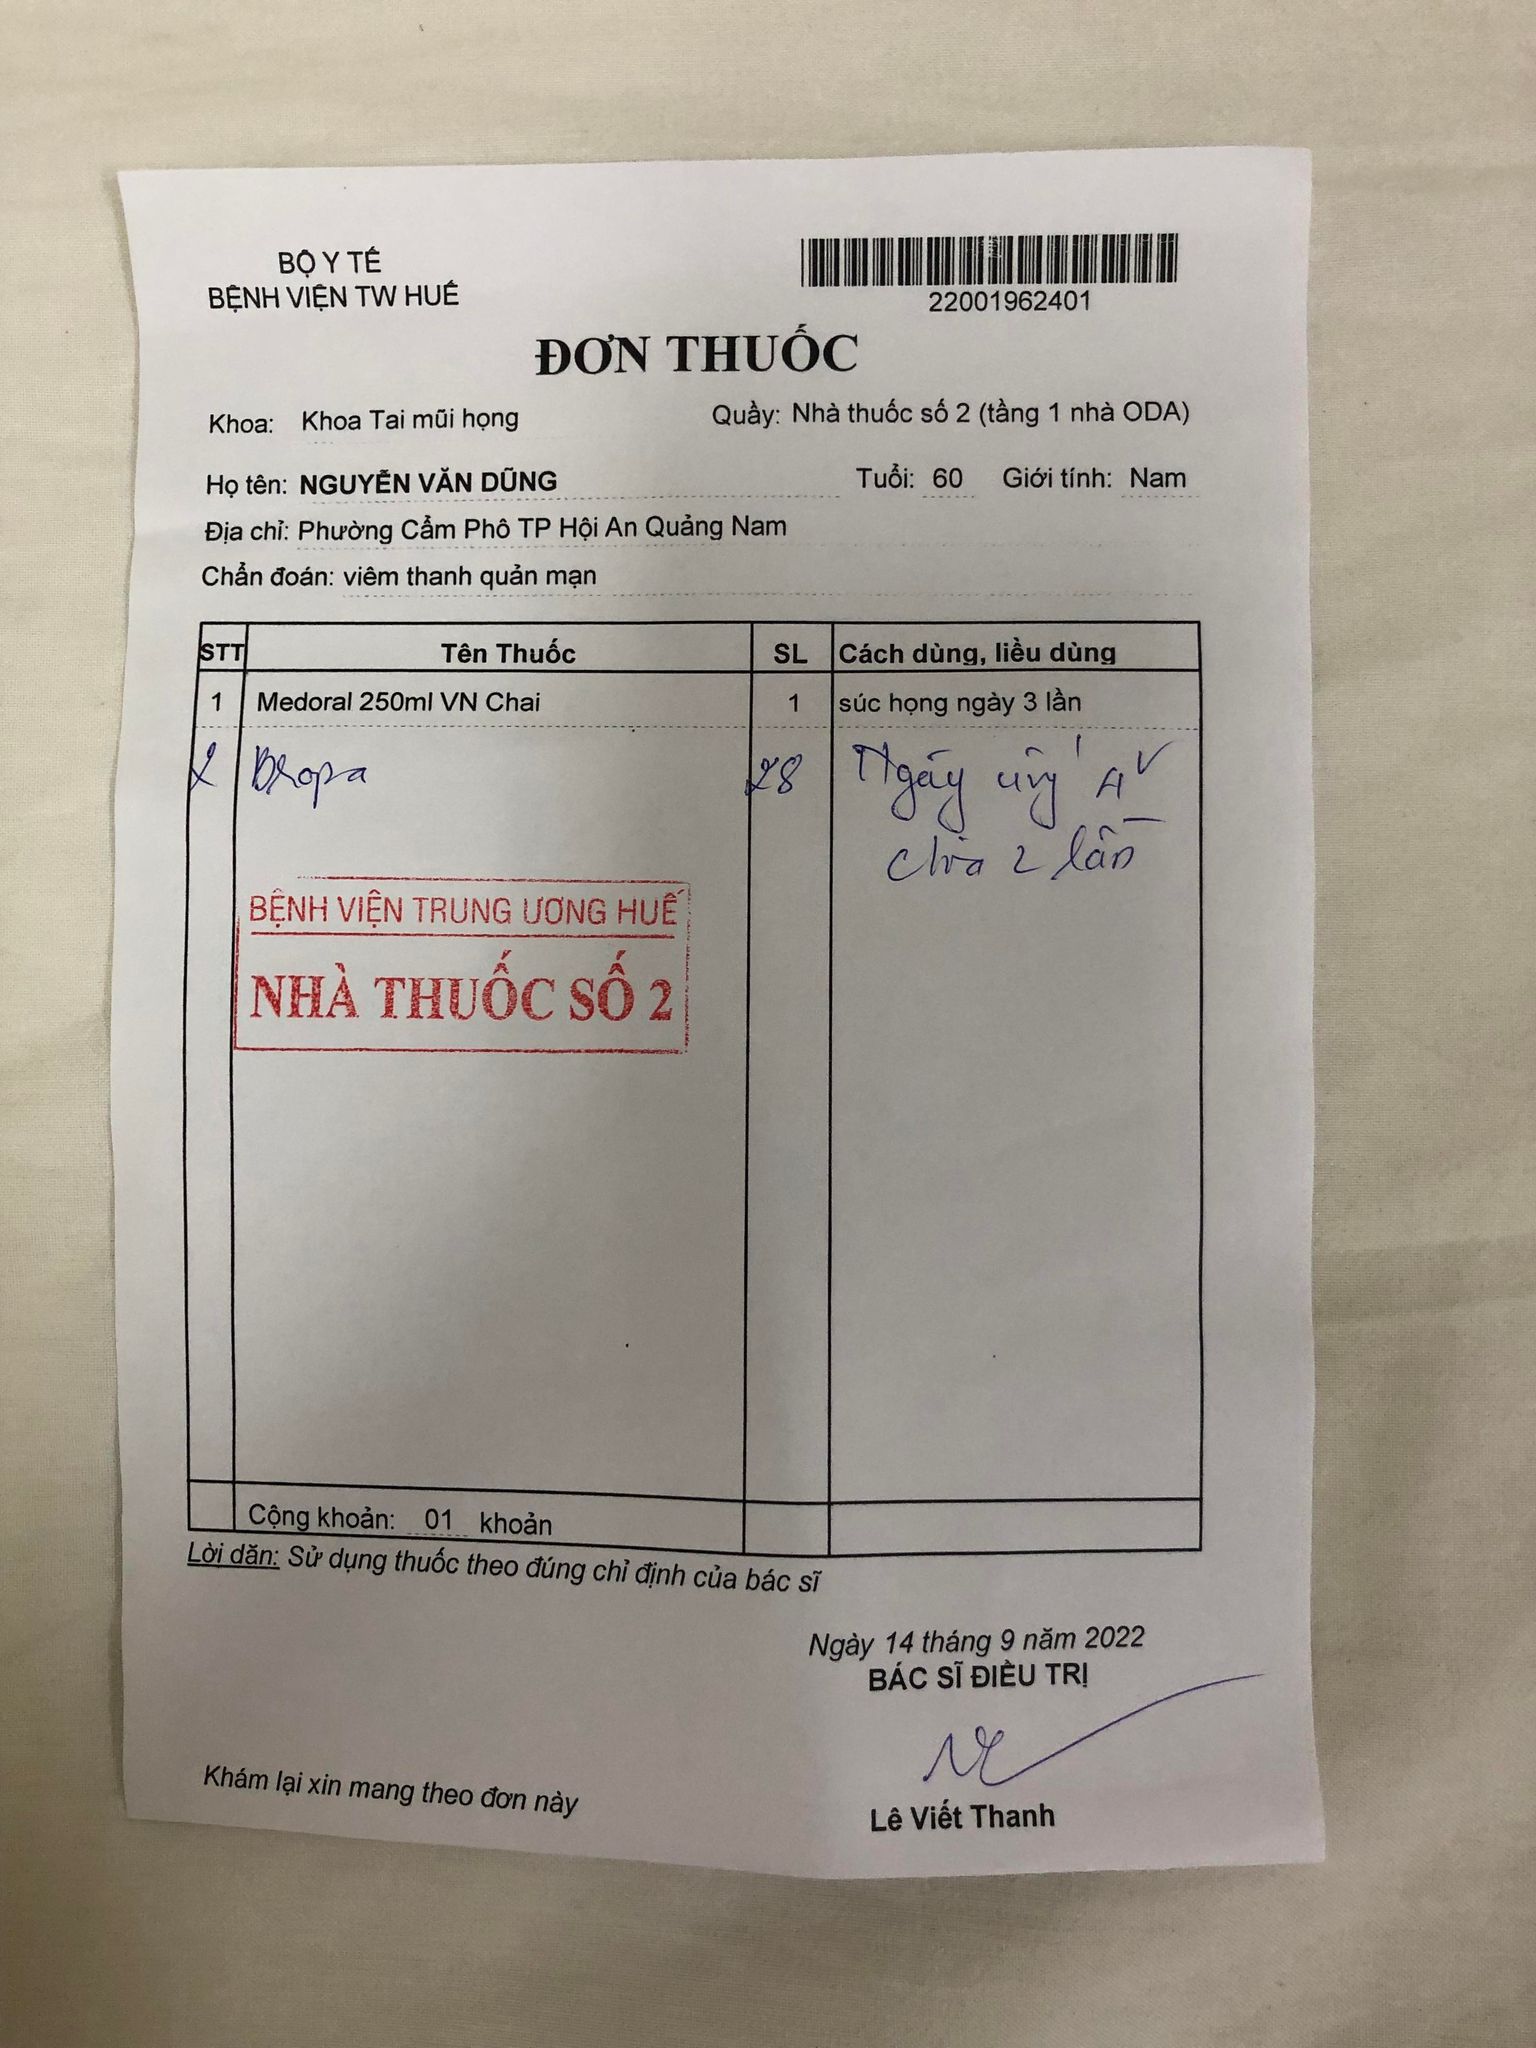 BỘ Y TẾ
BỆNH VIỆN TW HUẾ
22001962401
ĐƠN THUỐC
Khoa: Khoa Tai mũi họng Quầy: Nhà thuốc số 2 (tầng 1 nhà ODA)
Họ tên: NGUYỄN VĂN DŨNG Tuổi: 60 Giới tính: Nam
Địa chỉ: Phường Cẩm Phô TP Hội An Quảng Nam
Chẩn đoán: viêm thanh quản mạn
STT Tên Thuốc SL Cách dùng, liều dùng
1 Medoral 250ml VN Chai 1 súc họng ngày 3 lần
2 28 Ngày uống 4v
chia 2 lần
BỆNH VIỆN TRUNG ƯƠNG HUẾ
NHÀ THUỐC SỐ 2
Cộng khoản: 01 khoản
Lời dăn: Sử dụng thuốc theo đúng chỉ định của bác sĩ
Ngày 14 tháng 9 năm 2022
BÁC SĨ ĐIỀU TRỊ
Khám lại xin mang theo đơn này
Lê Viết Thanh